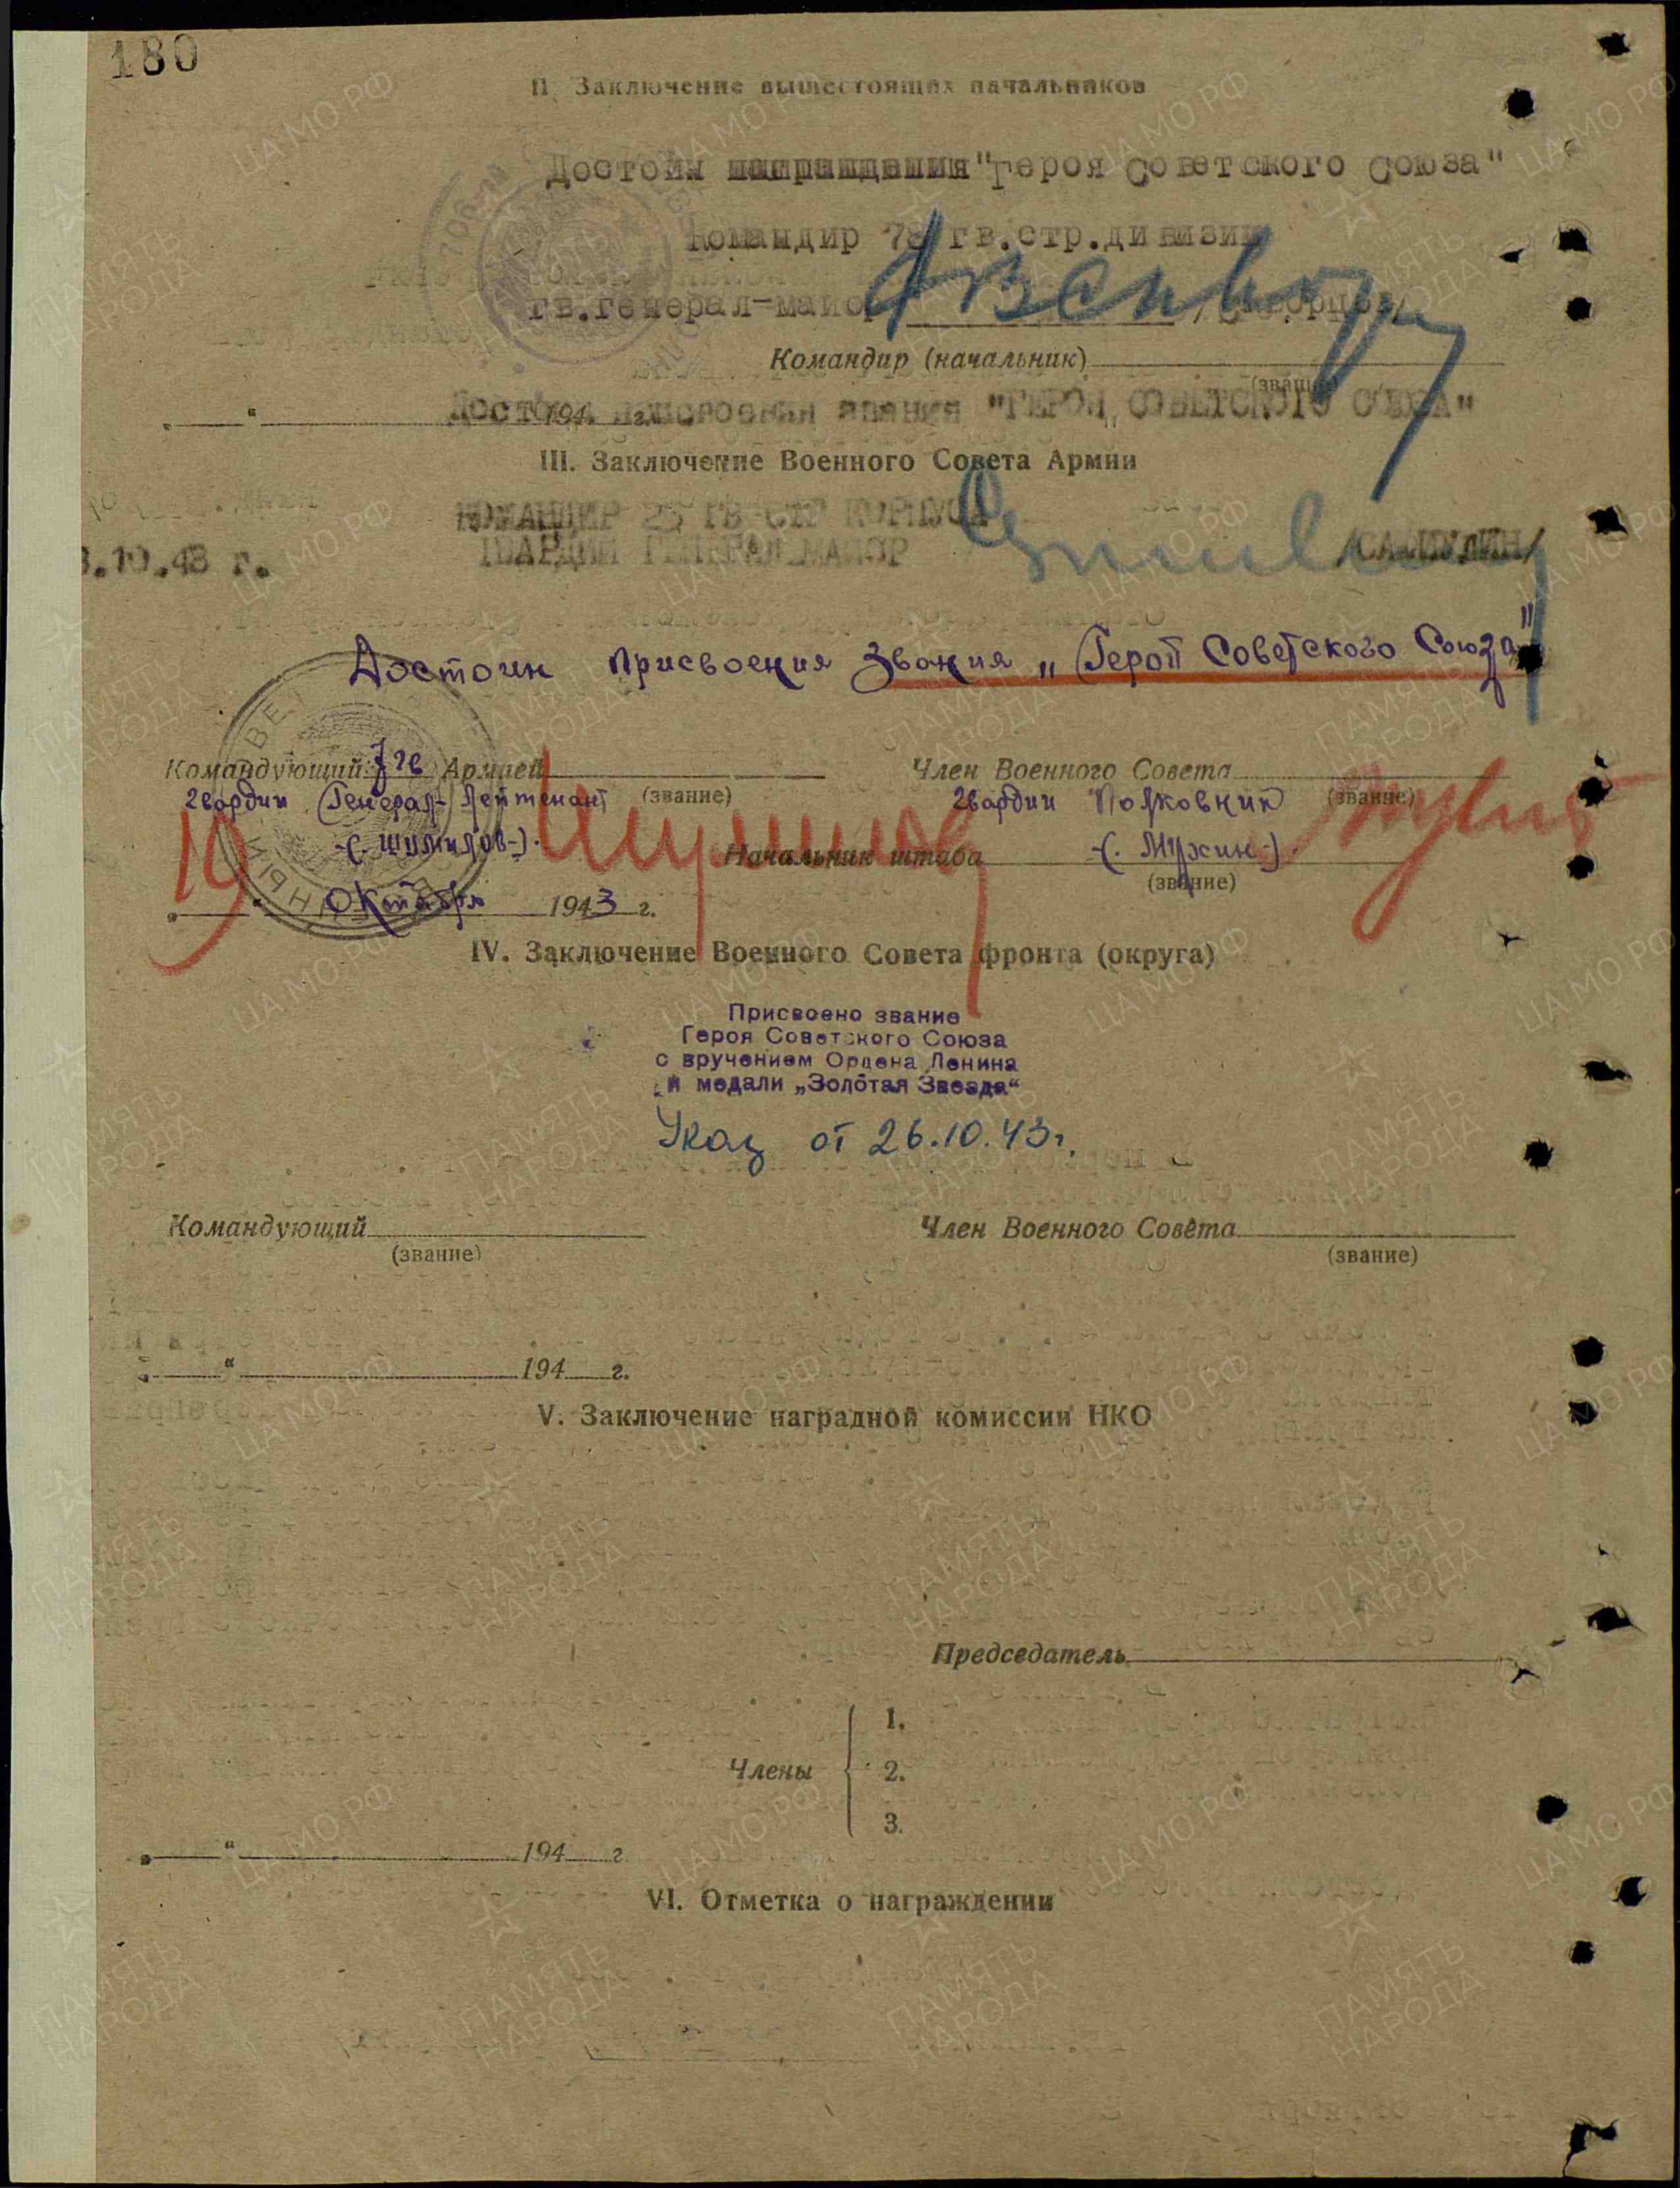 180
II. Заключение вышестоящих начальников
Достоин награждения "Героя Советского Союза"
Командир 78 гв.стр.дивизии
гв.генерал-майор
Командир (начальник)
(звание)
Достоин присвоения звания "ГЕРОЯ СОВЕТСКОГО СОЮЗА"
„ “ 194 г.
III. Заключение Военного Совета Армии
КОМАНДИР 25 ГВ СТР КОРПУСА
ГВАРДИИ ГЕНЕРАЛ МАЙОР /САФИУЛИН/
.10.43 г.
Достоин присвоения звания „Герой Советского Союза"
Командующий 7 гв Армией Член Военного Совета
гвардии Генерал-лейтенант (звание) гвардии Полковник (звание)
-(Шумилов-). Начальник штаба -(. Мухин-).
(звание)
„19“ Октября 1943 г.
IV. Заключение Военного Совета фронта (округа)
Присвоено звание
Героя Советского Союза
с вручением Ордена Ленина
и медали „Золотая Звезда“
Указ от 26.10.43г.
Командующий Член Военного Совета
(звание) (звание)
„ “ 194 г.
V. Заключение наградной комиссии НКО
Председатель
1.
Члены 2.
3.
„ “ 194 г
VI. Отметка о награждении
ЦАМО РФ
ПАМЯТЬ НАРОДА